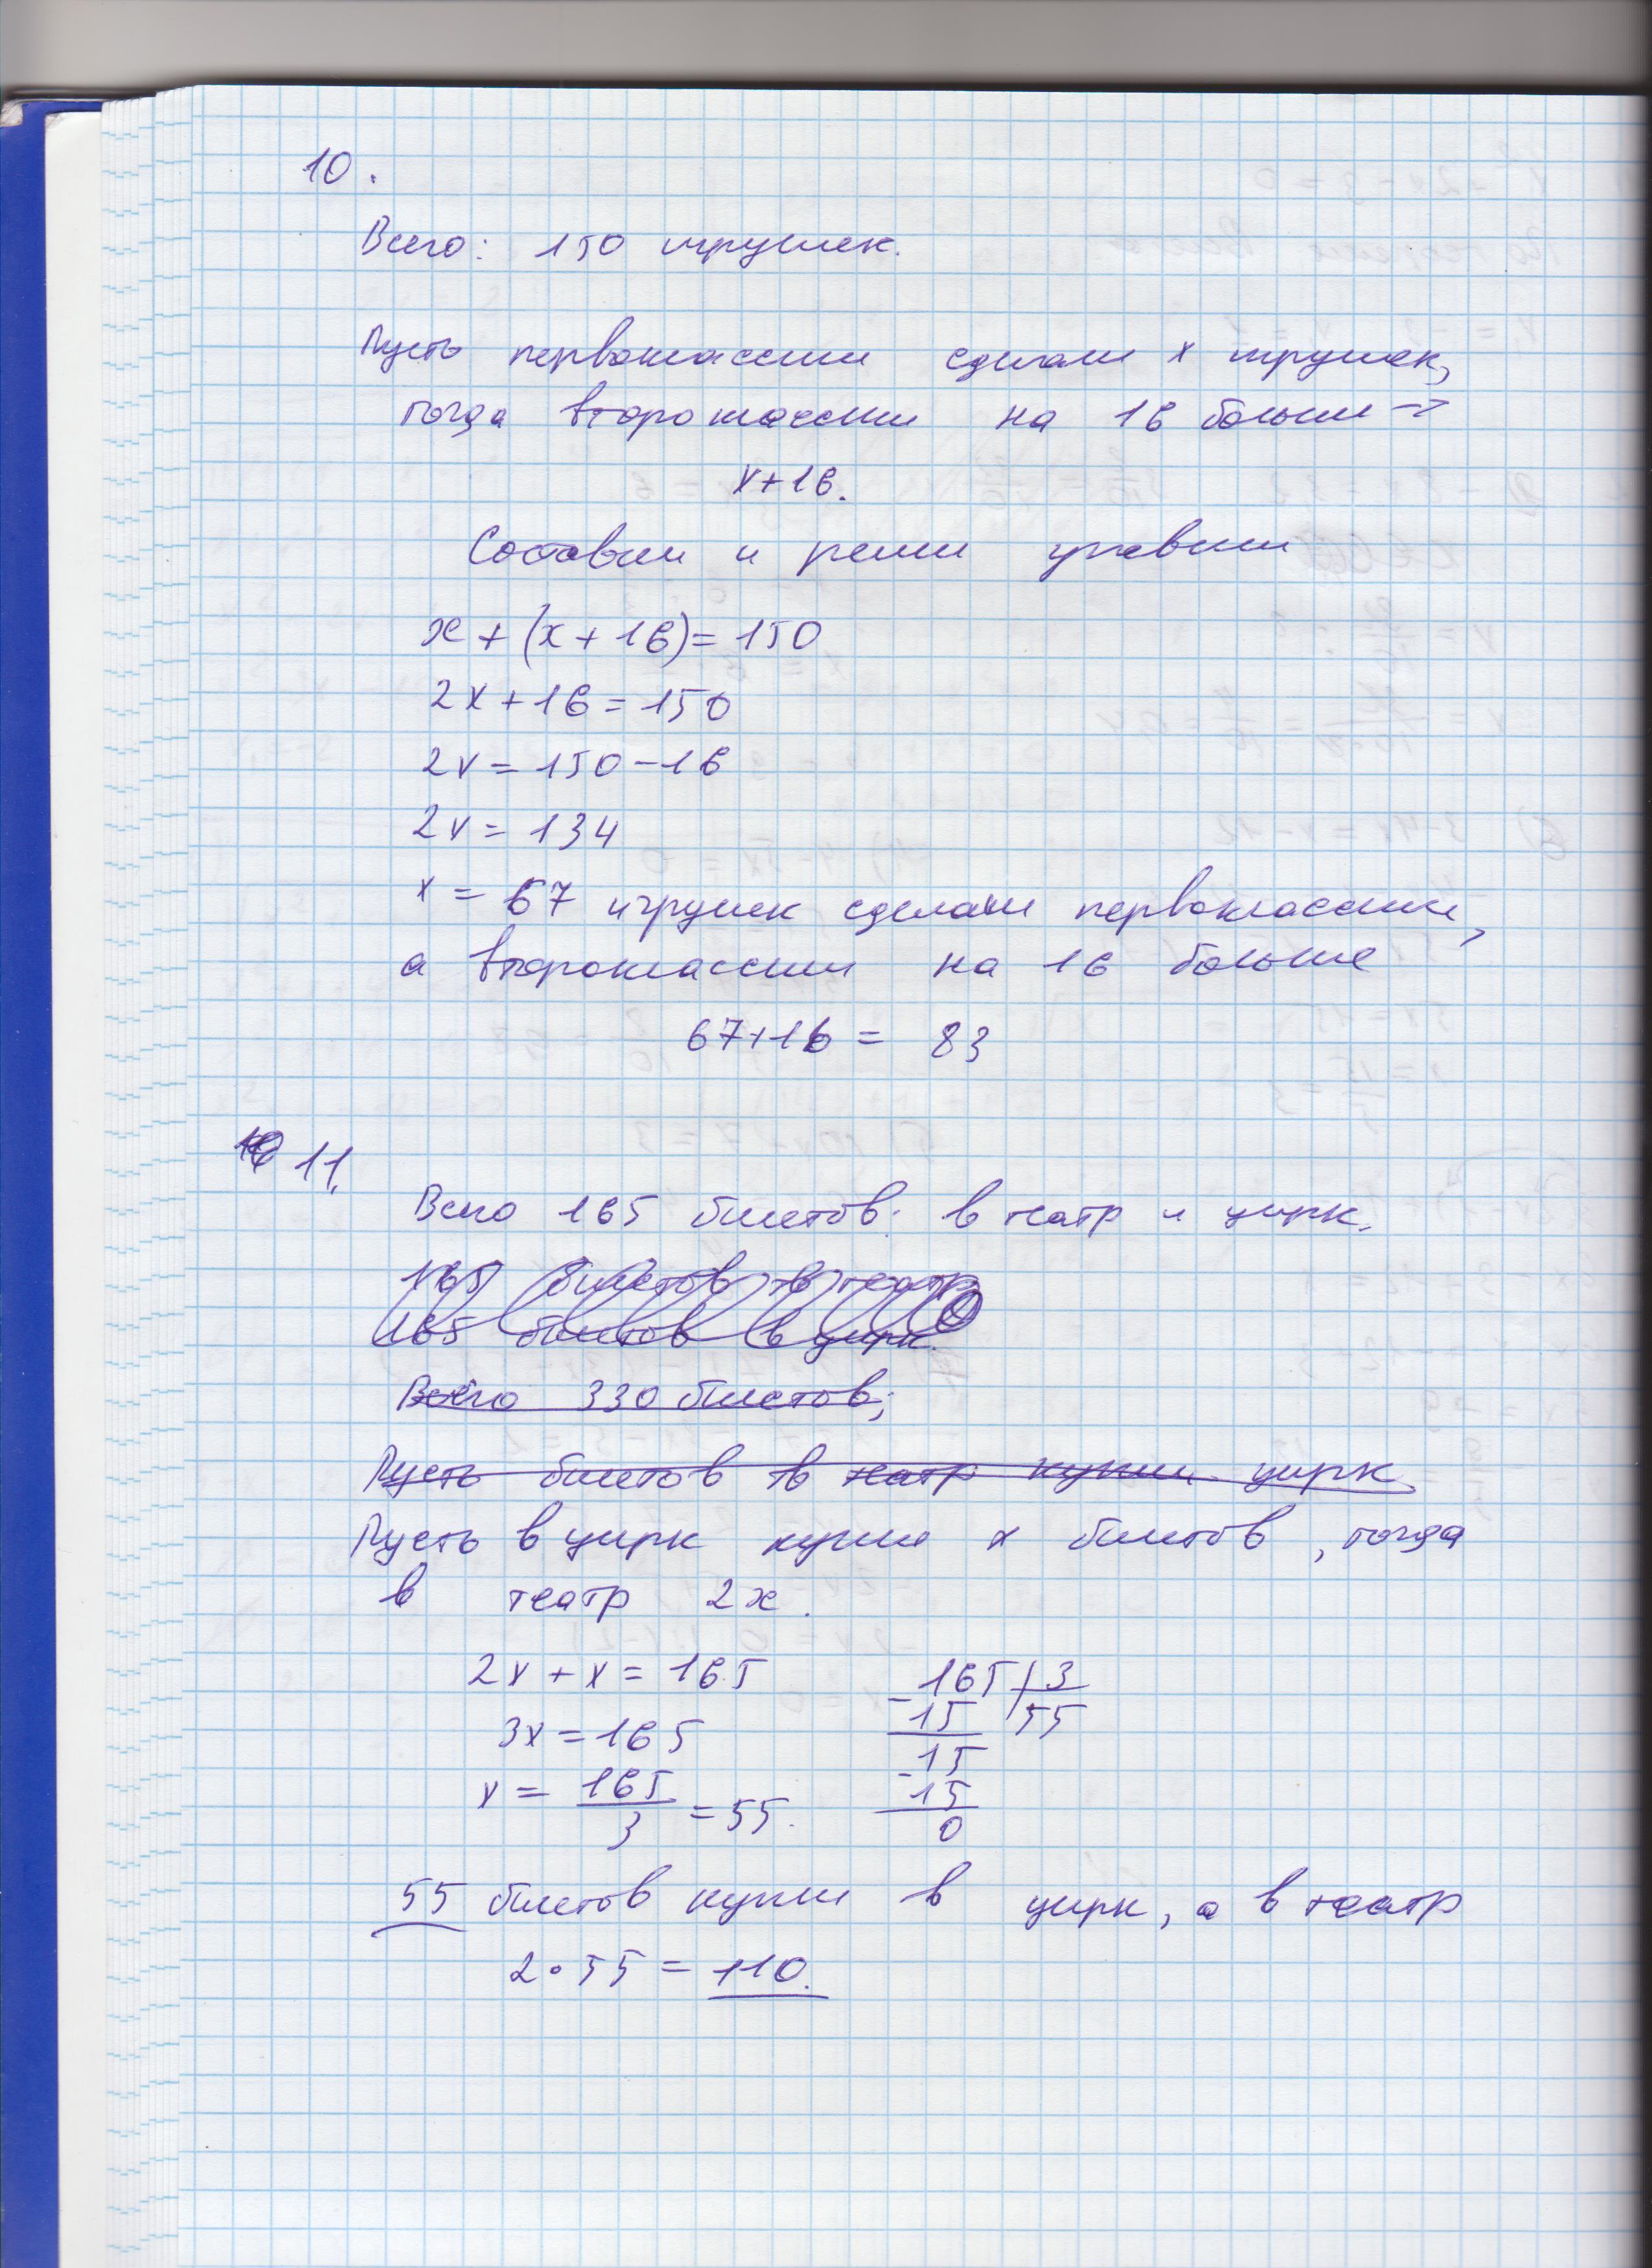 10.
Всего: 150 игрушек.
Пусть первоклассники сделали x игрушек,
тогда второклассники на 16 больше →
x+16.
Составим и решим уравнение
x + (x + 16) = 150
2x + 16 = 150
2x = 150 - 16
2x = 134
x = 67 игрушек сделали первоклассники,
а второклассники на 16 больше
67+16 = 83
11.
Всего 165 билетов: в театр и цирк.
165 билетов в театр
165 билетов в цирк.
Всего 330 билетов;
Пусть билетов в театр купили цирк
Пусть в цирк купили x билетов, тогда
в театр 2x.
2x + x = 165
3x = 165
x = 165/3 = 55.
165 | 3
- 15 | 55
15
- 15
0
55 билетов купили в цирк, а в театр
2 • 55 = 110.